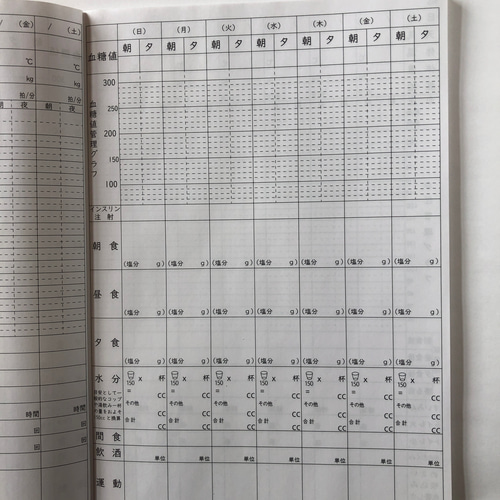 / (金) / (土)
℃ ℃
kg kg
拍/分 拍/分
朝 夜 朝 夜
時間 時間
回 回
回 回
(日) (月) (火) (水) (木) (金) (土)
血糖値 朝 夕 朝 夕 朝 夕 朝 夕 朝 夕 朝 夕 朝 夕
血糖値管理グラフ
300
250
200
150
100
インスリン
注射
朝食
(塩分 g) (塩分 g) (塩分 g) (塩分 g) (塩分 g) (塩分 g) (塩分 g)
昼食
(塩分 g) (塩分 g) (塩分 g) (塩分 g) (塩分 g) (塩分 g) (塩分 g)
夕食
(塩分 g) (塩分 g) (塩分 g) (塩分 g) (塩分 g) (塩分 g) (塩分 g)
水分
150 x 杯 150 x 杯 150 x 杯 150 x 杯 150 x 杯 150 x 杯 150 x 杯
= CC = CC = CC = CC = CC = CC = CC
その他 CC その他 CC その他 CC その他 CC その他 CC その他 CC その他 CC
合計 CC 合計 CC 合計 CC 合計 CC 合計 CC 合計 CC 合計 CC
間食
飲酒 単位 単位 単位 単位 単位 単位 単位
運動